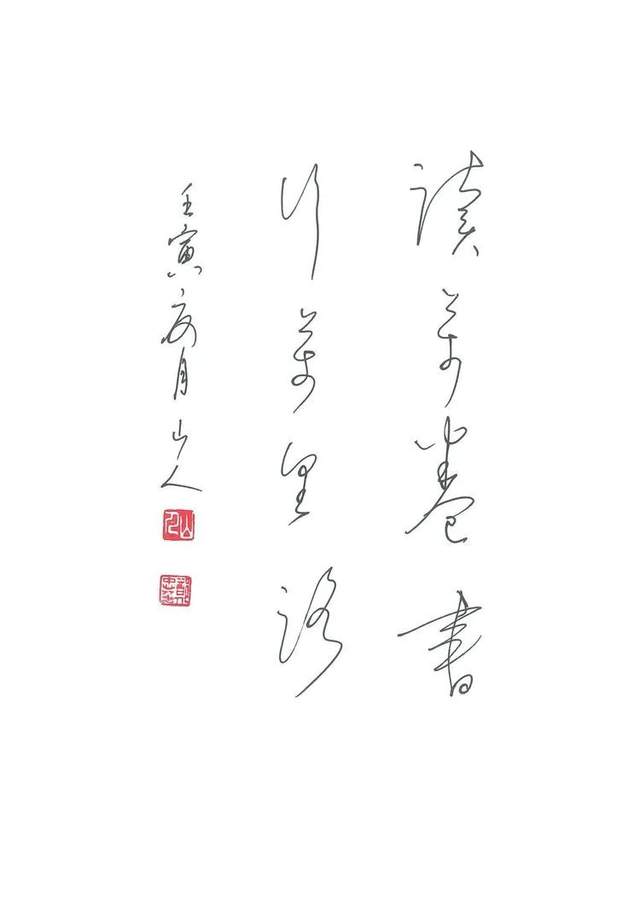 讀萬卷書
行萬里路
壬寅亥月山人
山人